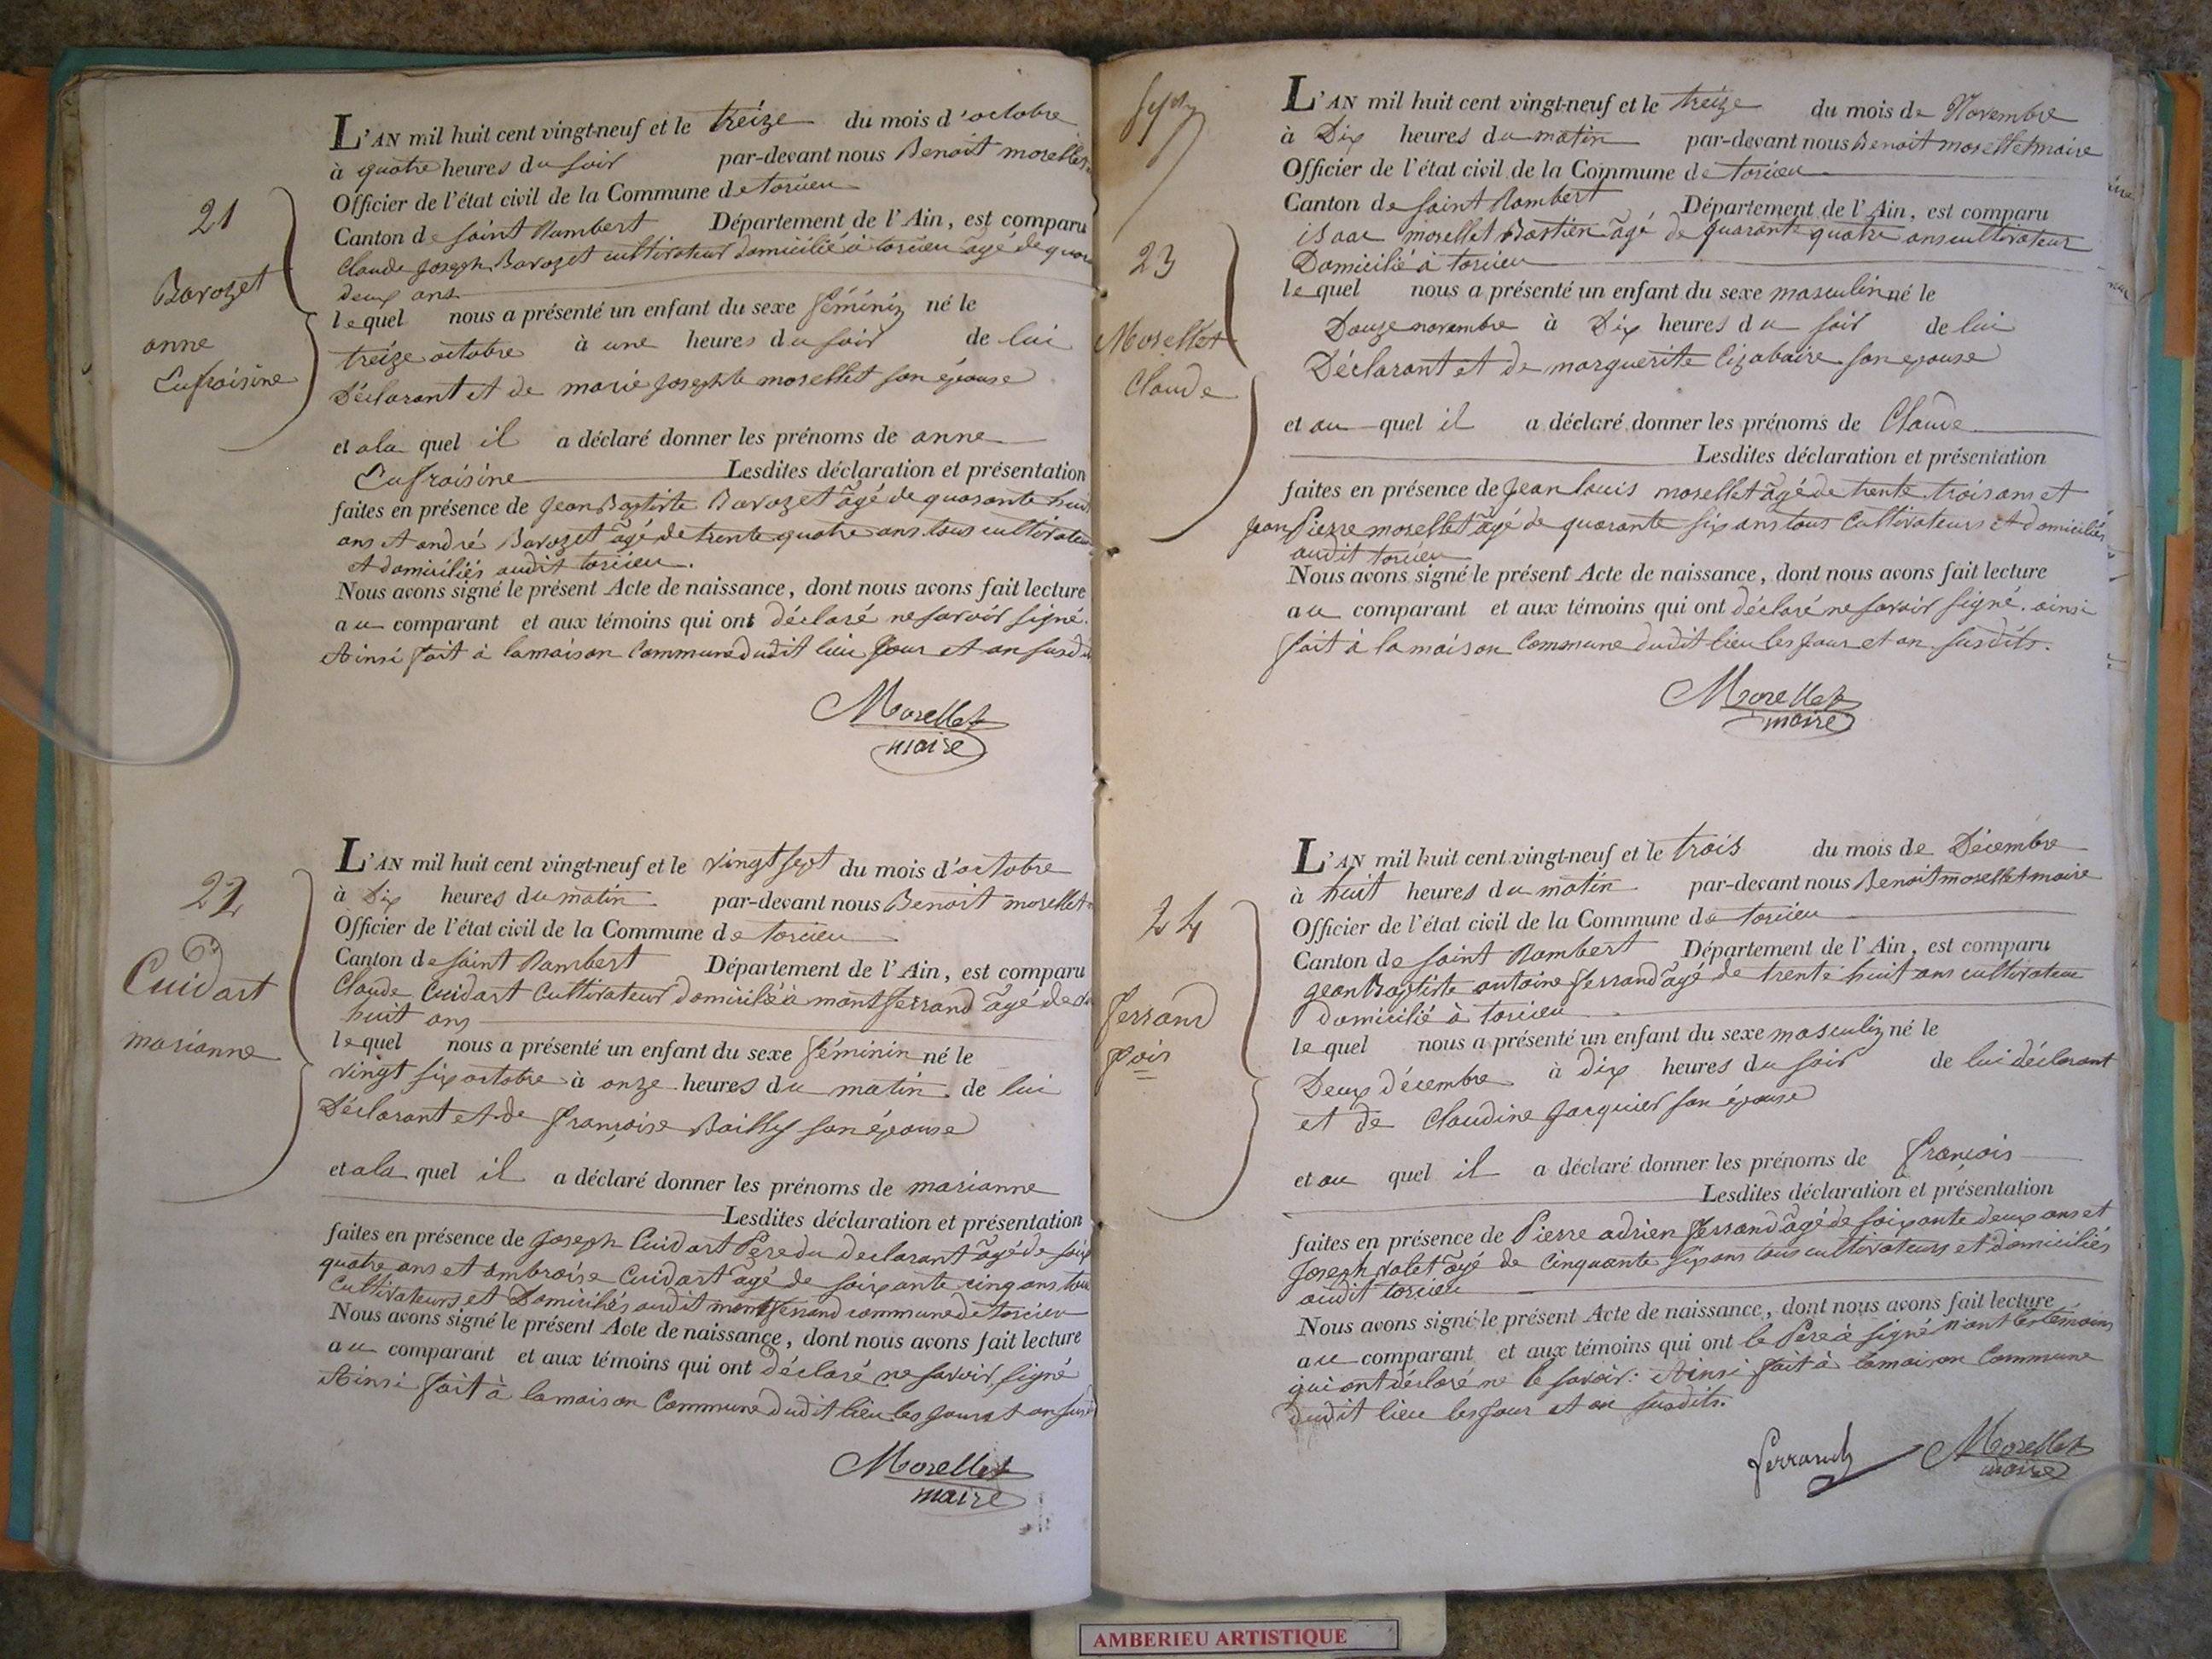 21
Barozet
anne
Eufroisine
L'AN mil huit cent vingt-neuf et le treize du mois d'octobre
à quatre heures du soir par-devant nous Benoit morellet
Officier de l'état civil de la Commune de torcieu
Canton de saint Rambert Département de l'Ain, est comparu
Claude Joseph Barozet cultivateur domicilié à torcieu âgé de
deux ans
lequel nous a présenté un enfant du sexe féminin né le
treize octobre à une heures du soir de lui
Déclarant et de marie Josephte morellet son épouse
et a la quel il a déclaré donner les prénoms de anne
Eufroisine Lesdites déclaration et présentation
faites en présence de Jean Baptiste Barozet âgé de quarante huit
ans et andré Barozet âgé de trente quatre ans tous cultivateurs
et domiciliés audit torcieu.
Nous avons signé le présent Acte de naissance, dont nous avons fait lecture
au comparant et aux témoins qui ont déclaré ne savoir signé.
Ainsi fait à la maison Commune dudit lieu jour et an susdit
Morellet
maire
22
Cuidart
marianne
L'AN mil huit cent vingt-neuf et le vingt sept du mois d'octobre
à Dix heures du matin par-devant nous Benoit morellet
Officier de l'état civil de la Commune de torcieu
Canton de saint Rambert Département de l'Ain, est comparu
Claude Cuidart Cultivateur domicilié à montferrand âgé de
huit ans
lequel nous a présenté un enfant du sexe féminin né le
vingt six octobre à onze heures du matin de lui
Déclarant et de françoise Bailly son épouse
et a la quel il a déclaré donner les prénoms de marianne
Lesdites déclaration et présentation
faites en présence de Joseph Cuidart Père du declarant âgé de
quatre ans et ambroise Cuidart âgé de soixante cinq ans tous
Cultivateurs et Domiciliés audit montferrand commune de torcieu
Nous avons signé le présent Acte de naissance, dont nous avons fait lecture
au comparant et aux témoins qui ont déclaré ne savoir signé
Ainsi fait à la maison Commune dudit lieu les jour et an
Morellet
maire
23
Morellet
Claude
L'AN mil huit cent vingt-neuf et le treize du mois de Novembre
à Dix heures du matin par-devant nous Benoit morellet maire
Officier de l'état civil de la Commune de torcieu
Canton de saint Rambert Département de l'Ain, est comparu
isaac morellet Bastien âgé de quarante quatre ans cultivateur
Domicilié à torcieu
lequel nous a présenté un enfant du sexe masculin né le
Douze novembre à Dix heures du soir de lui
Déclarant et de marguerite son epouse
et au quel il a déclaré donner les prénoms de Claude
Lesdites déclaration et présentation
faites en présence de Jean louis morellet âgé de trente trois ans et
Jean Pierre morellet âgé de quarante six ans tous Cultivateurs et domiciliés
audit torcieu
Nous avons signé le présent Acte de naissance, dont nous avons fait lecture
au comparant et aux témoins qui ont déclaré ne savoir signé. ainsi
fait à la maison Commune dudit lieu les jour et an susdits.
Morellet
maire
24
ferrand
L'AN mil huit cent vingt-neuf et le trois du mois de Décembre
à huit heures du matin par-devant nous Benoit morellet maire
Officier de l'état civil de la Commune de torcieu
Canton de saint Rambert Département de l'Ain, est comparu
jean Baptiste antoine ferrand âgé de trente huit ans cultivateur
domicilié à torcieu
lequel nous a présenté un enfant du sexe masculin né le
Deux décembre à dix heures du soir de lui déclarant
et de Claudine Jarquier son épouse
et au quel il a déclaré donner les prénoms de françois
Lesdites déclaration et présentation
faites en présence de Pierre adrien ferrand âgé de soixante deux ans et
Joseph valet âgé de Cinquante six ans tous cultivateurs et domiciliés
audit torcieu
Nous avons signé le présent Acte de naissance, dont nous avons fait lecture
au comparant et aux témoins qui ont le Père à signé les témoins
qui ont déclaré ne le savoir. Ainsi fait à la maison Commune
dudit lieu les jour et an susdits.
ferrand Morellet
maire
AMBERIEU ARTISTIQUE